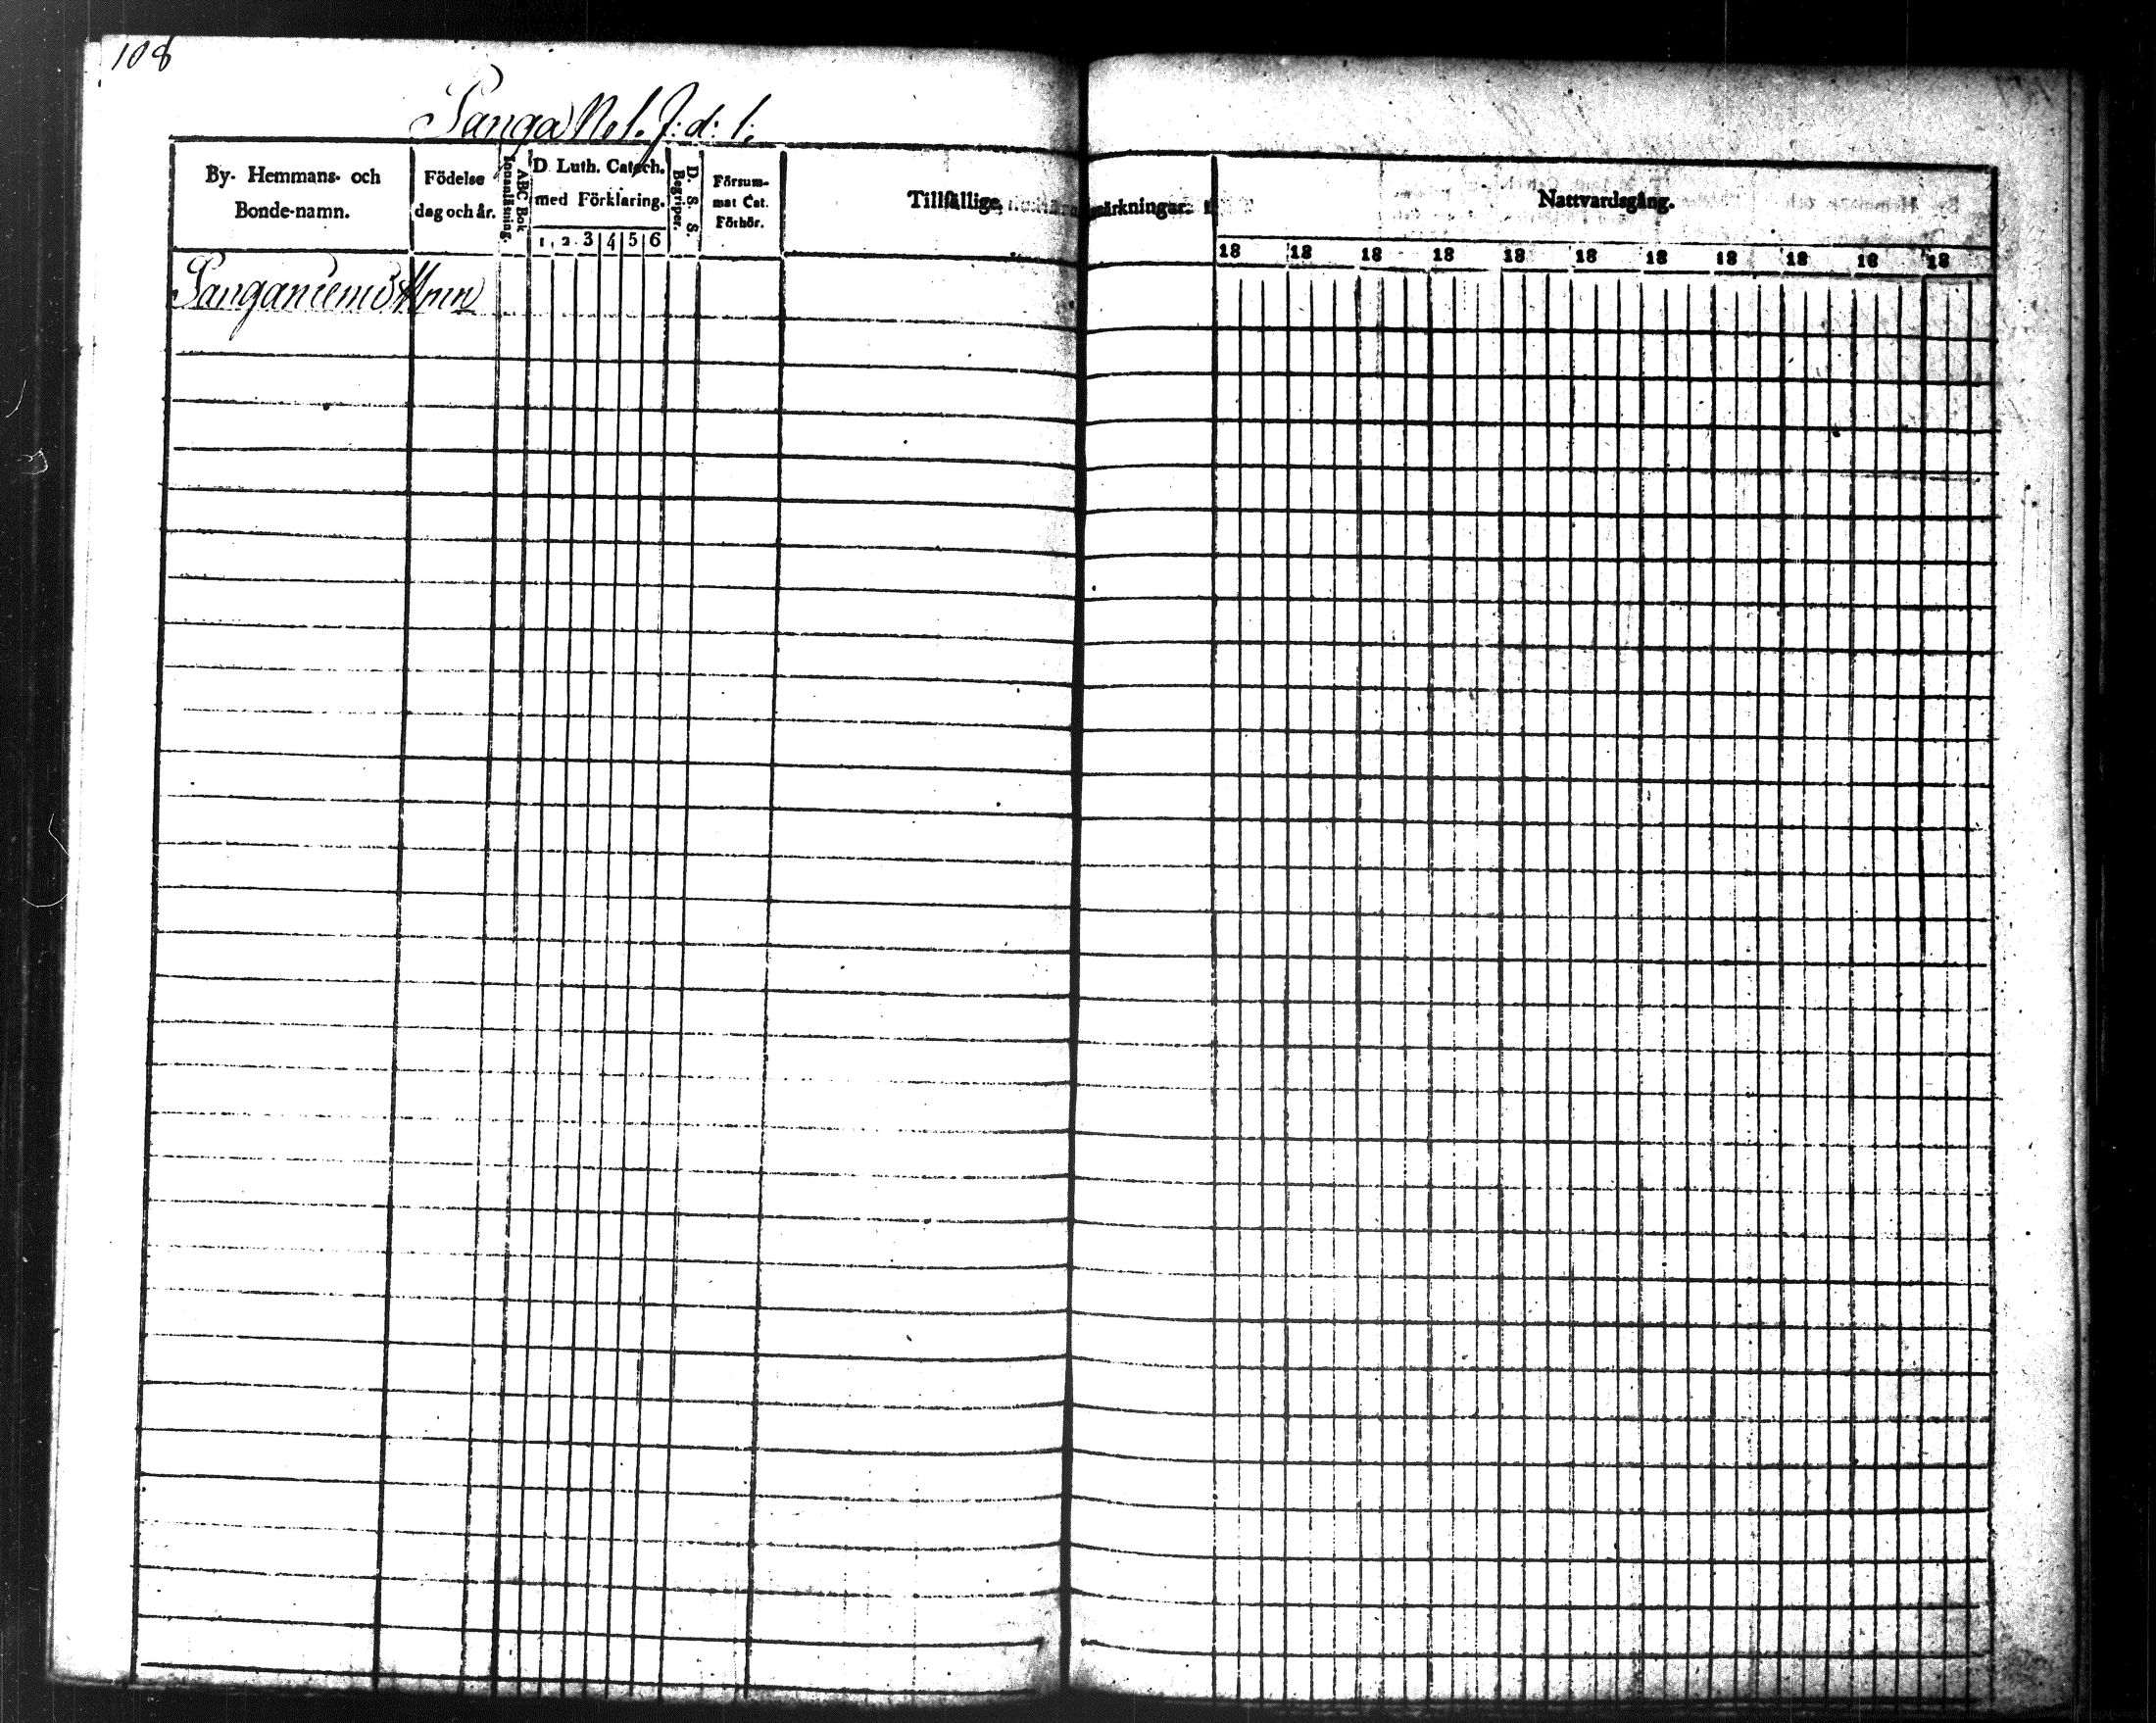 108
Sanga No 1. J: d: 1.
By- Hemmans- och
Bonde-namn.
Födelse
dag och år.
Innanläsning.
ABC Bok
D. Luth. Catech.
med Förklaring.
1 2 3 4 5 6
D. S. S. S.
Begriper.
Försum-
mat Cat.
Förhör.
Tillfällige
märkningar.
Nattvardsgång.
18 18 18 18 18 18 18 18 18 18 18
Sanganiemi